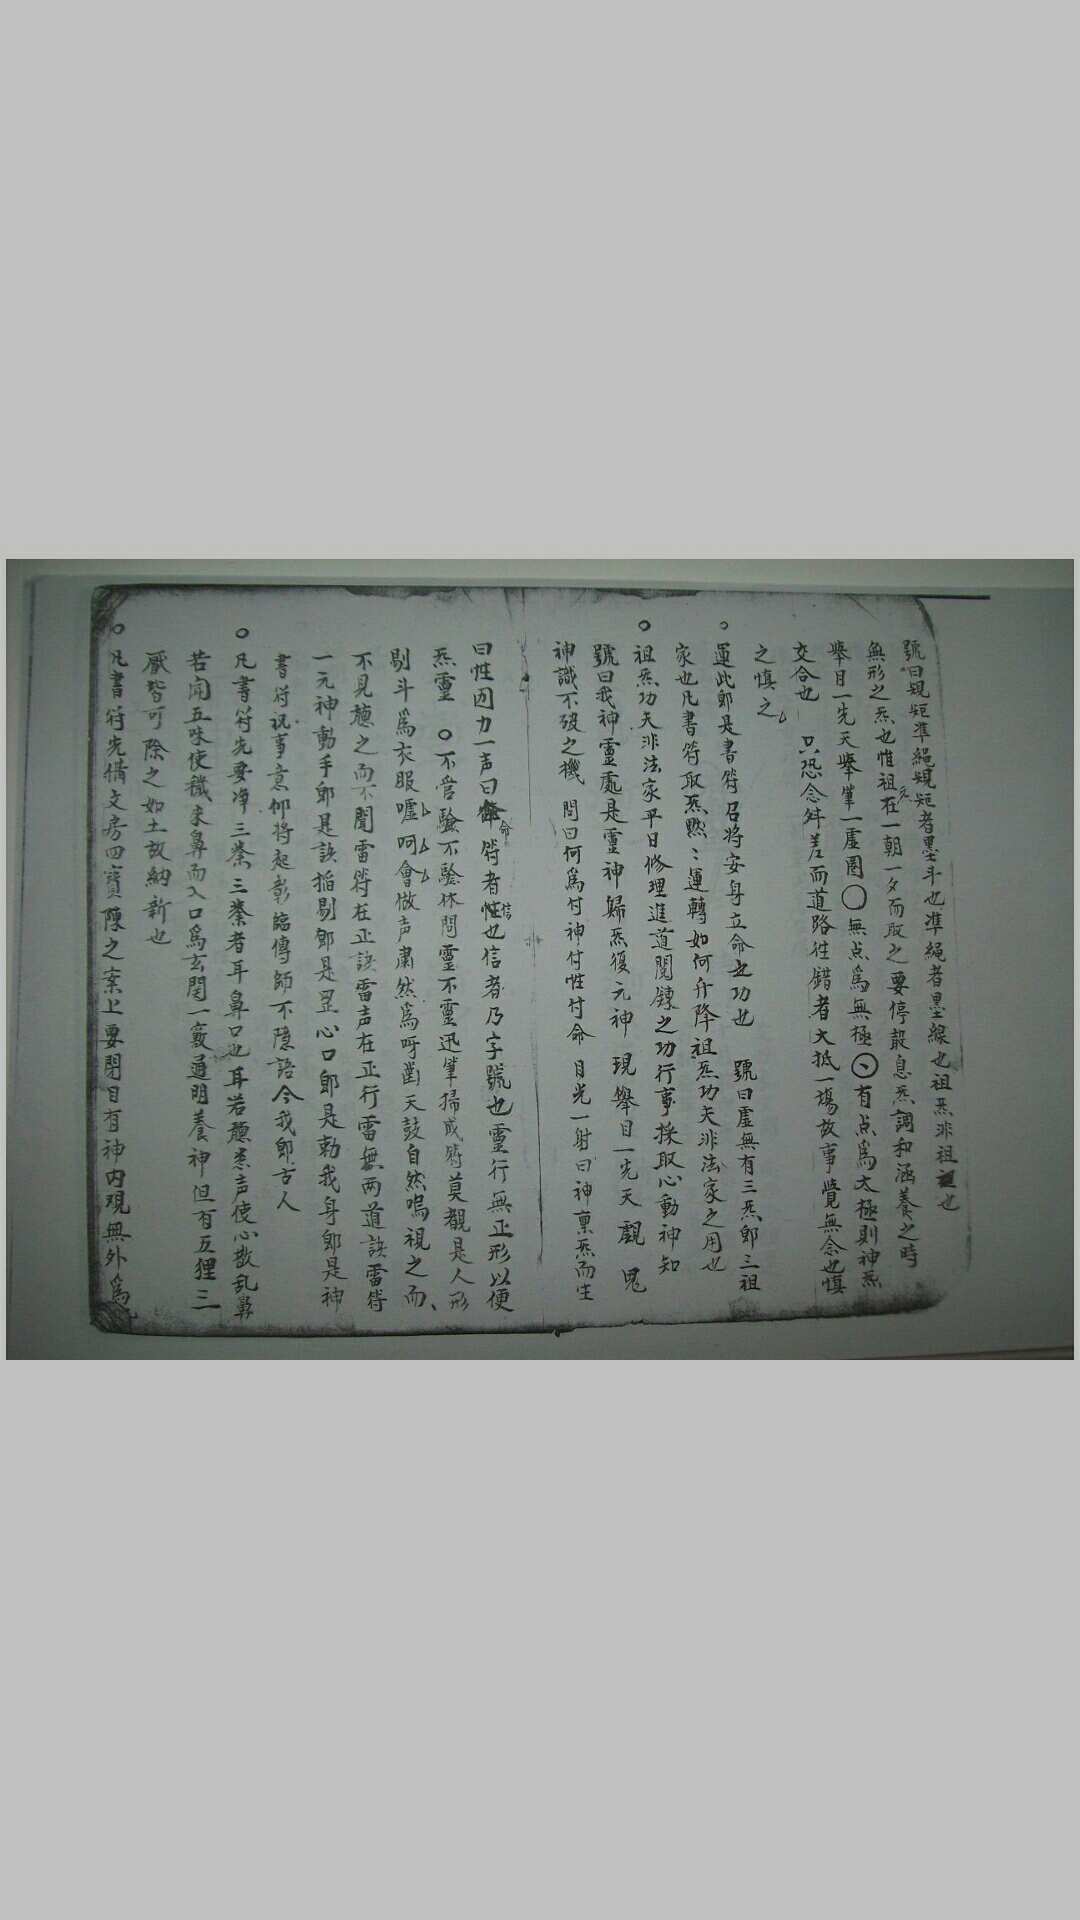 號曰規矩準繩規矩者墨斗也準繩者墨線也祖炁非祖也
無形之炁也惟祖在一朝一夕而取之要停設息炁調和涵養之時
舉目一先天舉筆一虛圈〇無点爲無極有点爲太極則神炁
交合也 只恐念舛差而道路徃錯者大抵一塲故事覺無念也慎
之慎之
○運此卽是書符召將安身立命之功也 號曰虛無有三炁卽三祖
家也凡書符取炁默:運轉如何升降祖炁功夫非法家之用也
○祖炁功夫非法家平日修理進道閱鍊之功行事採取心動神知
號曰我神靈處是靈神歸炁復元神 現舉目一先天覷 鬼
神識不破之機 問曰何爲付神付性付命 目光一射曰神禀炁而生
曰性因力一声曰命符者信也信者乃字號也靈行無正形以便
炁靈 ○不管驗不驗休問靈不靈迅筆掃成符莫觀是人形
剔斗爲衣服噓呵會做声肅然爲呼凿天鼓自然鳴視之而
不見聽之而不聞雷符在正訣雷声在正行雷無两道訣雷符
一元神動手卽是訣搯剔卽是罡心口卽是勅我身卽是神
書符祝事意仰將起彰臨傳師不隱語今我卽古人
○凡書符先要净三業三業者耳鼻口也耳若聽惡声使心散乱鼻
若闻五味使穢来鼻而入口爲玄関一竅通明養神但有五狸三
厭皆可除之如土故納新也
○凡書符先備文房四寶陳之案上要閉目有神内观無外爲